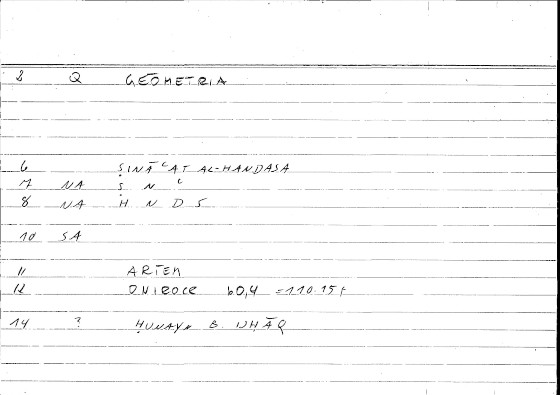 8 Q GEŌMETRIA
6 ṢINĀʿAT AL-HANDASA
7 NA Ṣ N ʿ
8 NA H N D S
10 SA
11 ARTEM
12 ONIROCR 60,4 =110.15f
14 ? ḤUNAYN B. ISḤĀQ